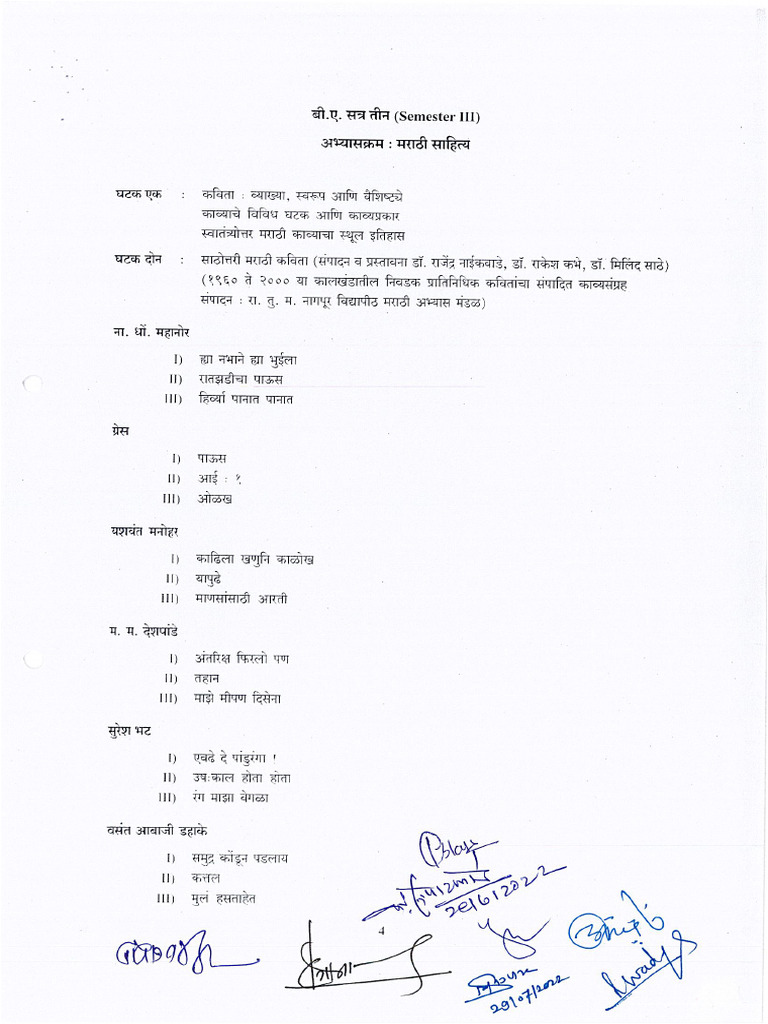 बी.ए. सत्र तीन (Semester III)
अभ्यासक्रम : मराठी साहित्य
घटक एक : कविता : व्याख्या, स्वरूप आणि वैशिष्ट्ये
काव्याचे विविध घटक आणि काव्यप्रकार
स्वातंत्र्योत्तर मराठी काव्याचा स्थूल इतिहास
घटक दोन : साठोत्तरी मराठी कविता (संपादन व प्रस्तावना डॉ. राजेंद्र नाईकवाडे, डॉ. राकेश कभे, डॉ. मिलिंद साठे)
(१९६० ते २००० या कालखंडातील निवडक प्रातिनिधिक कवितांचा संपादित काव्यसंग्रह
संपादन : रा. तु. म. नागपूर विद्यापीठ मराठी अभ्यास मंडळ)
ना. धों. महानोर
I) ह्या नभाने ह्या भुईला
II) रातझडीचा पाऊस
III) हिर्व्या पानात पानात
ग्रेस
I) पाऊस
II) आई : १
III) ओळख
यशवंत मनोहर
I) काढिला खणुनि काळोख
II) यापुढे
III) माणसांसाठी आरती
म. म. देशपांडे
I) अंतरिक्ष फिरलो पण
II) तहान
III) माझे मीपण दिसेना
सुरेश भट
I) एवढे दे पांडुरंगा !
II) उषःकाल होता होता
III) रंग माझा वेगळा
वसंत आबाजी डहाके
I) समुद्र कोंडून पडलाय
II) कत्तल
III) मुलं हसताहेत
4
29/07/2022